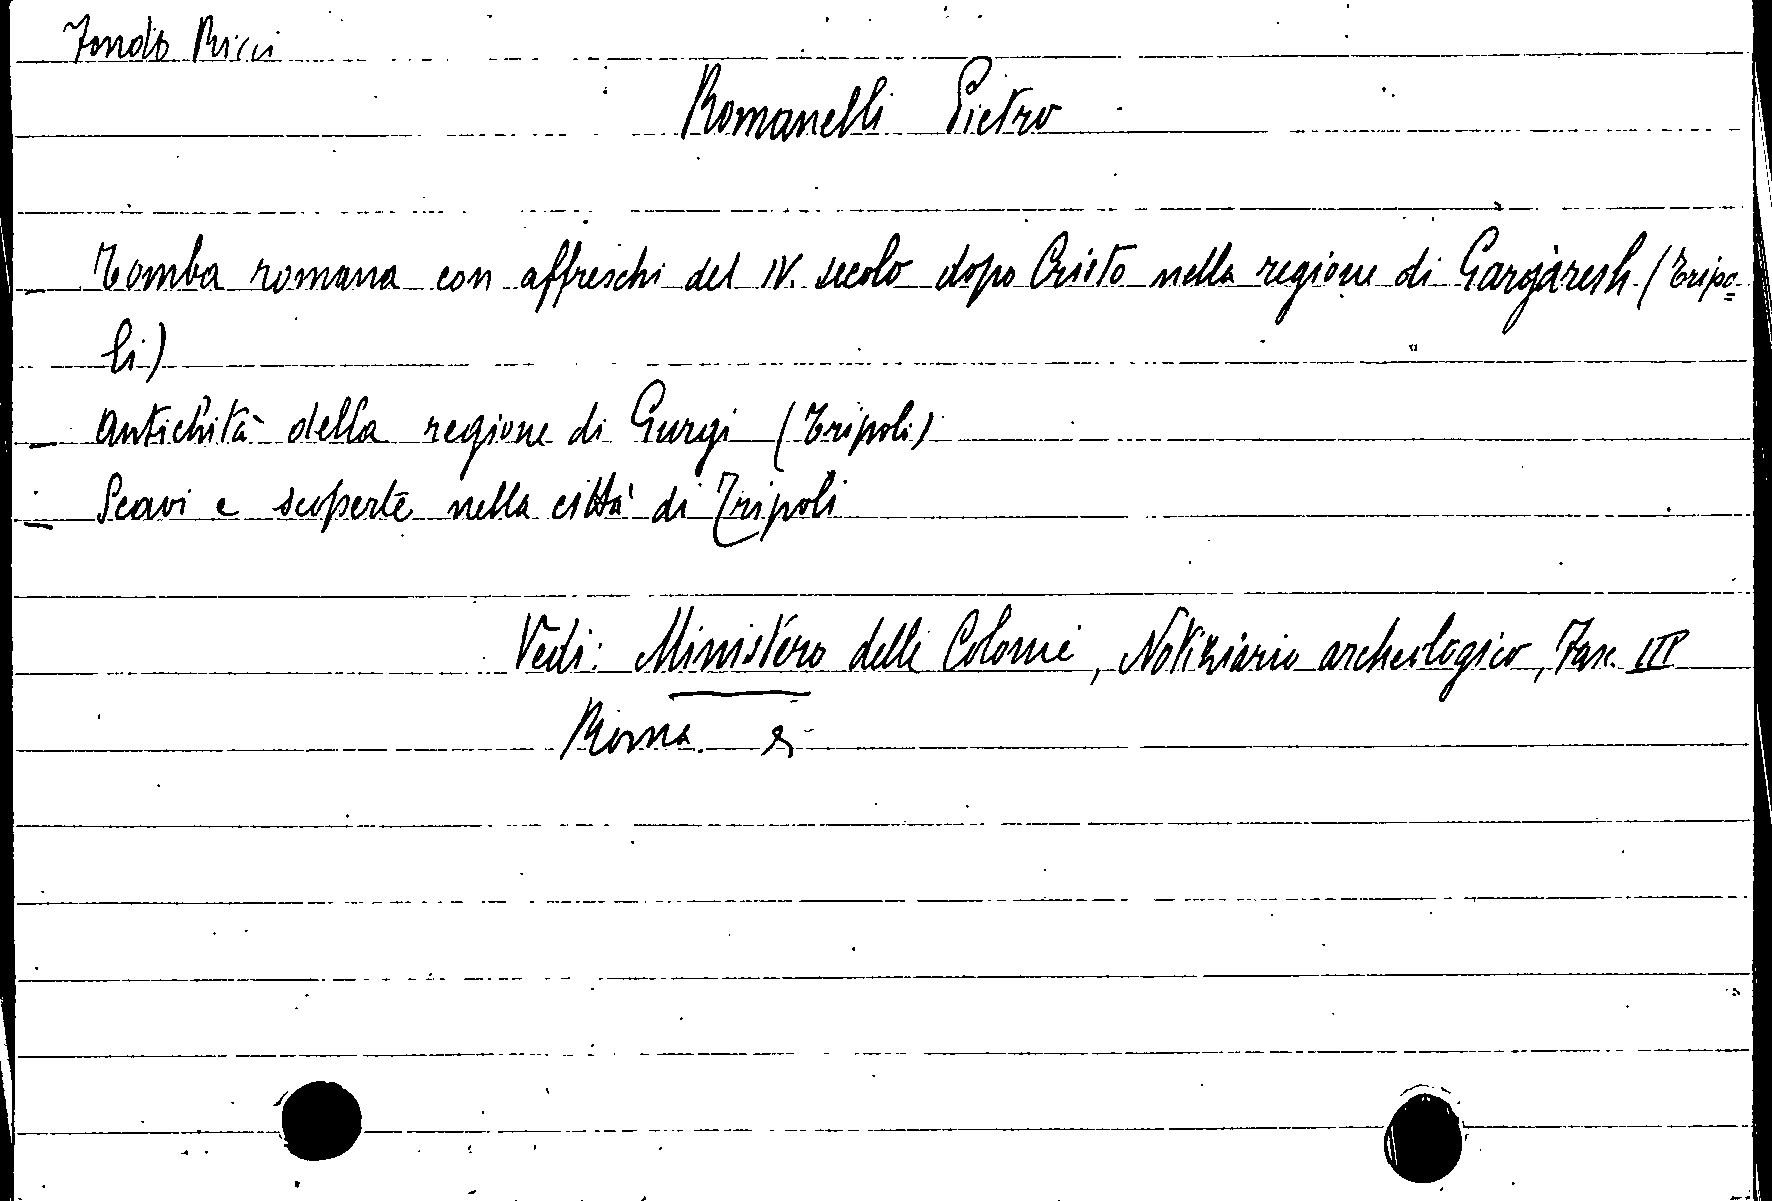 Fondo Ricci
Romanelli Pietro
- Tomba romana con affreschi del IV. secolo dopo Cristo nella regione di Gargàresh (Tripo=
li)
- Antichità della regione di Gurgi (Tripoli)
- Scavi e scoperte nella città di Tripoli
Vedi: Ministero delle Colonie, Notiziario archeologico, Fasc. III
Roma.